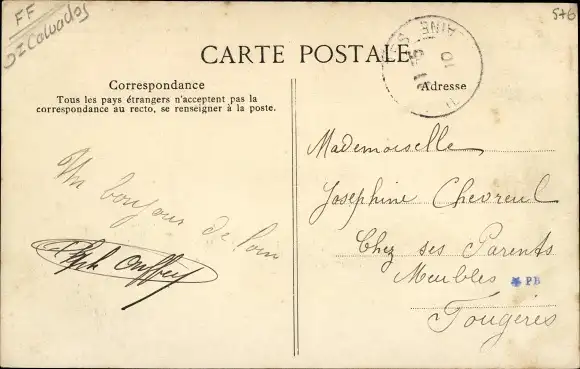 FF
DZ Calvados
576
CARTE POSTALE
Correspondance
Tous les pays étrangers n'acceptent pas la
correspondance au recto, se renseigner à la poste.
Adresse
Un bonjour de loin
Mademoiselle
Josephine Chevreul
Chez ses Parents
Meubles
PB
Fougères